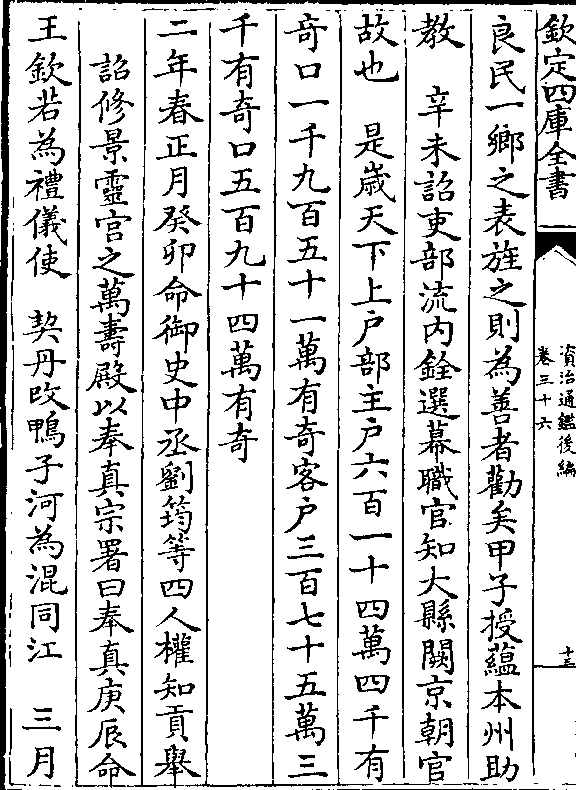 欽定四庫全書
資治通鑑後編
卷三十六
十三
良民一鄉之表旌之則為善者勸矣甲子授蘊本州助
教　辛未詔吏部流内銓選幕職官知大縣闕京朝官
故也　是歲天下上戶部主戶六百一十四萬四千有
奇口一千九百五十一萬有奇客戶三百七十五萬三
千有奇口五百九十四萬有奇
二年春正月癸卯命御史中丞劉筠等四人權知貢舉
詔修景靈宮之萬壽殿以奉真宗署曰奉真庚辰命
王欽若為禮儀使　契丹改鴨子河為混同江　三月